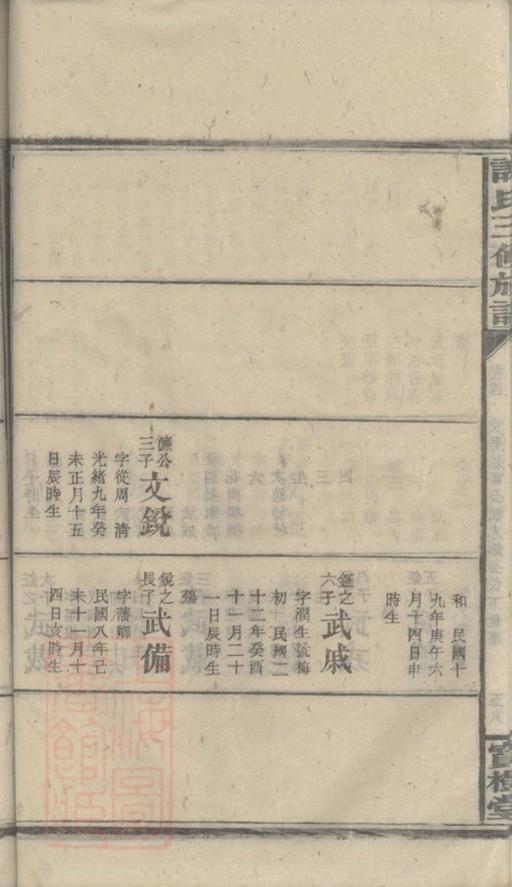 氏三修族譜
寶樹堂
濂公
三子
文銳
字從周 清
光緒九年癸
未正月十五
日辰時生
和 民國十
九年庚午六
月十四日申
時生
鋋之
六子
武戚
字潤生號梅
初 民國二
十二年癸酉
十一月二十
一日辰時生
殤
銳之
長子
武備
字藩卿
民國八年己
未十一月十
四日亥時生